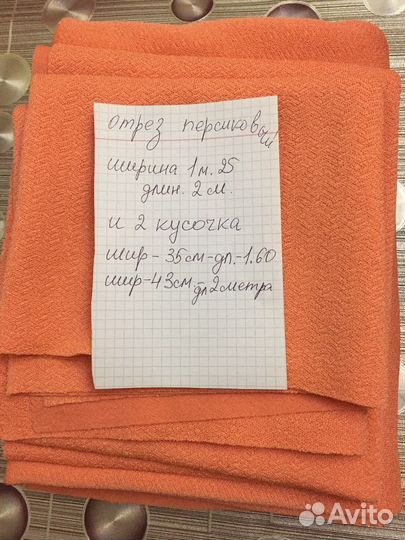 отрез персиковый
ширина 1м.25
длин. 2 м.
и 2 кусочка
шир - 35см - дл. - 1.60
шир - 43см. дл 2 метра
Avito